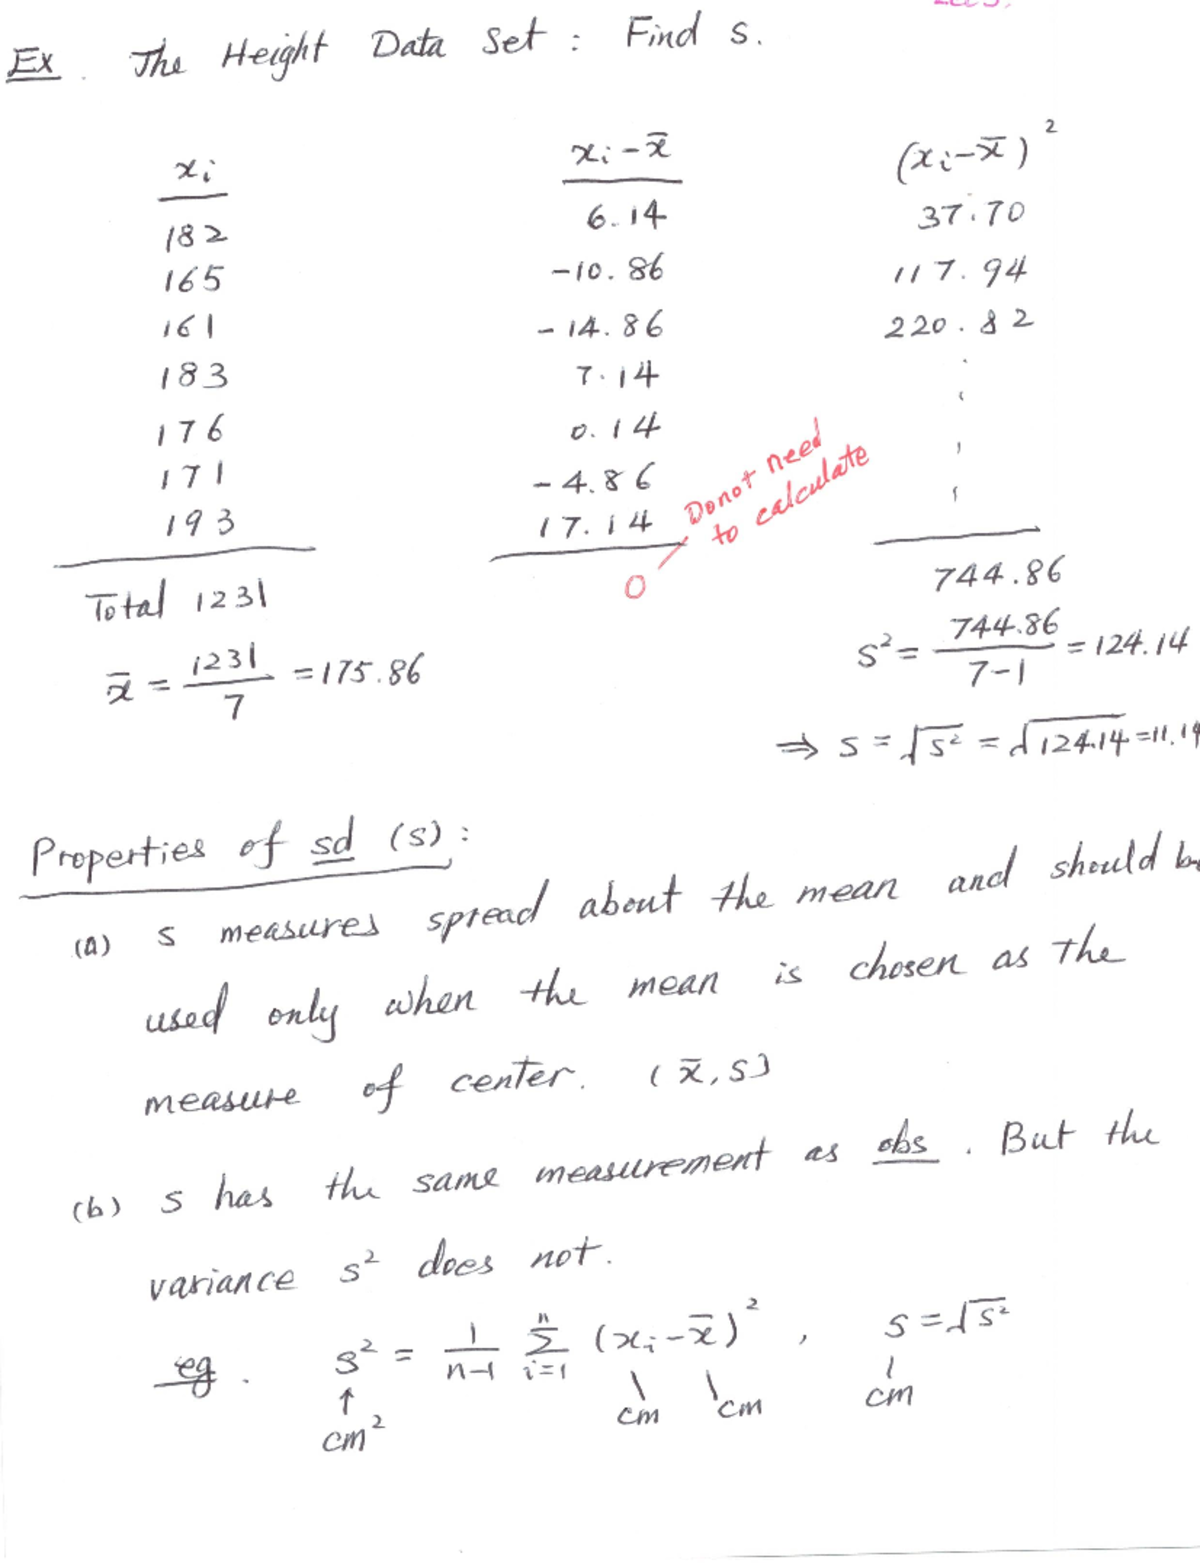 Ex. The Height Data Set : Find s.
xi xi-x̄ (xi-x̄)²
182 6.14 37.70
165 -10.86 117.94
161 -14.86 220.82
183 7.14 .
176 0.14
171 -4.86
193 17.14
Do not need
to calculate
Total 1231 0 744.86
x̄ = 1231/7 = 175.86
s² = 744.86/7-1 = 124.14
⇒ s = √s² = √124.14 = 11.14
Properties of sd (s) :
(a) s measures spread about the mean and should be
used only when the mean is chosen as the
measure of center. (x̄, s)
(b) s has the same measurement as obs . But the
variance s² does not.
eg . s² = 1/n-1 Σ i=1 n (xi-x̄)² , s = √s²
↑ cm² cm cm cm